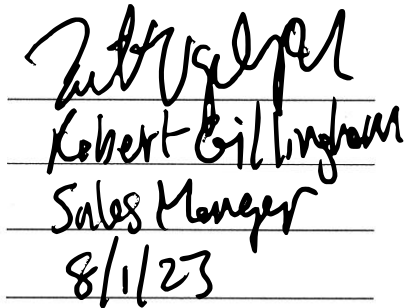 Robert Gillingham
Sales Manger
8/1/23